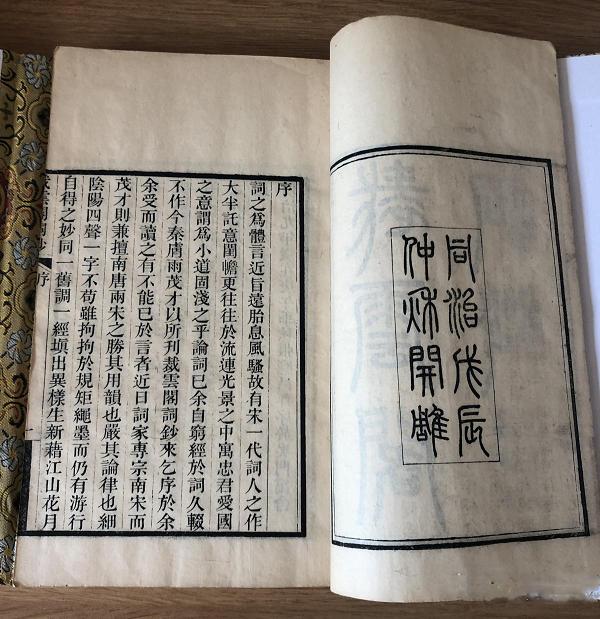 同治戊辰
仲秌開雕
序
詞之爲體言近旨遠胎息風騷故有宋一代詞人之作
大半託意閨幨更往往於流連光景之中寓忠君愛國
之意謂爲小道固淺之乎論詞已余自窮經於詞久輟
不作今秦膚雨茂才以所刋裁雲閣詞鈔來乞序於余
余受而讀之有不能已於言者近日詞家專宗南宋而
茂才則兼擅南唐兩宋之勝其用韻也嚴其論律也細
陰陽四聲一字不苟雖拘拘於規矩繩墨而仍有游行
自得之妙同一舊調一經塡出異樣生新藉江山花月
裁雲閣詞鈔 序